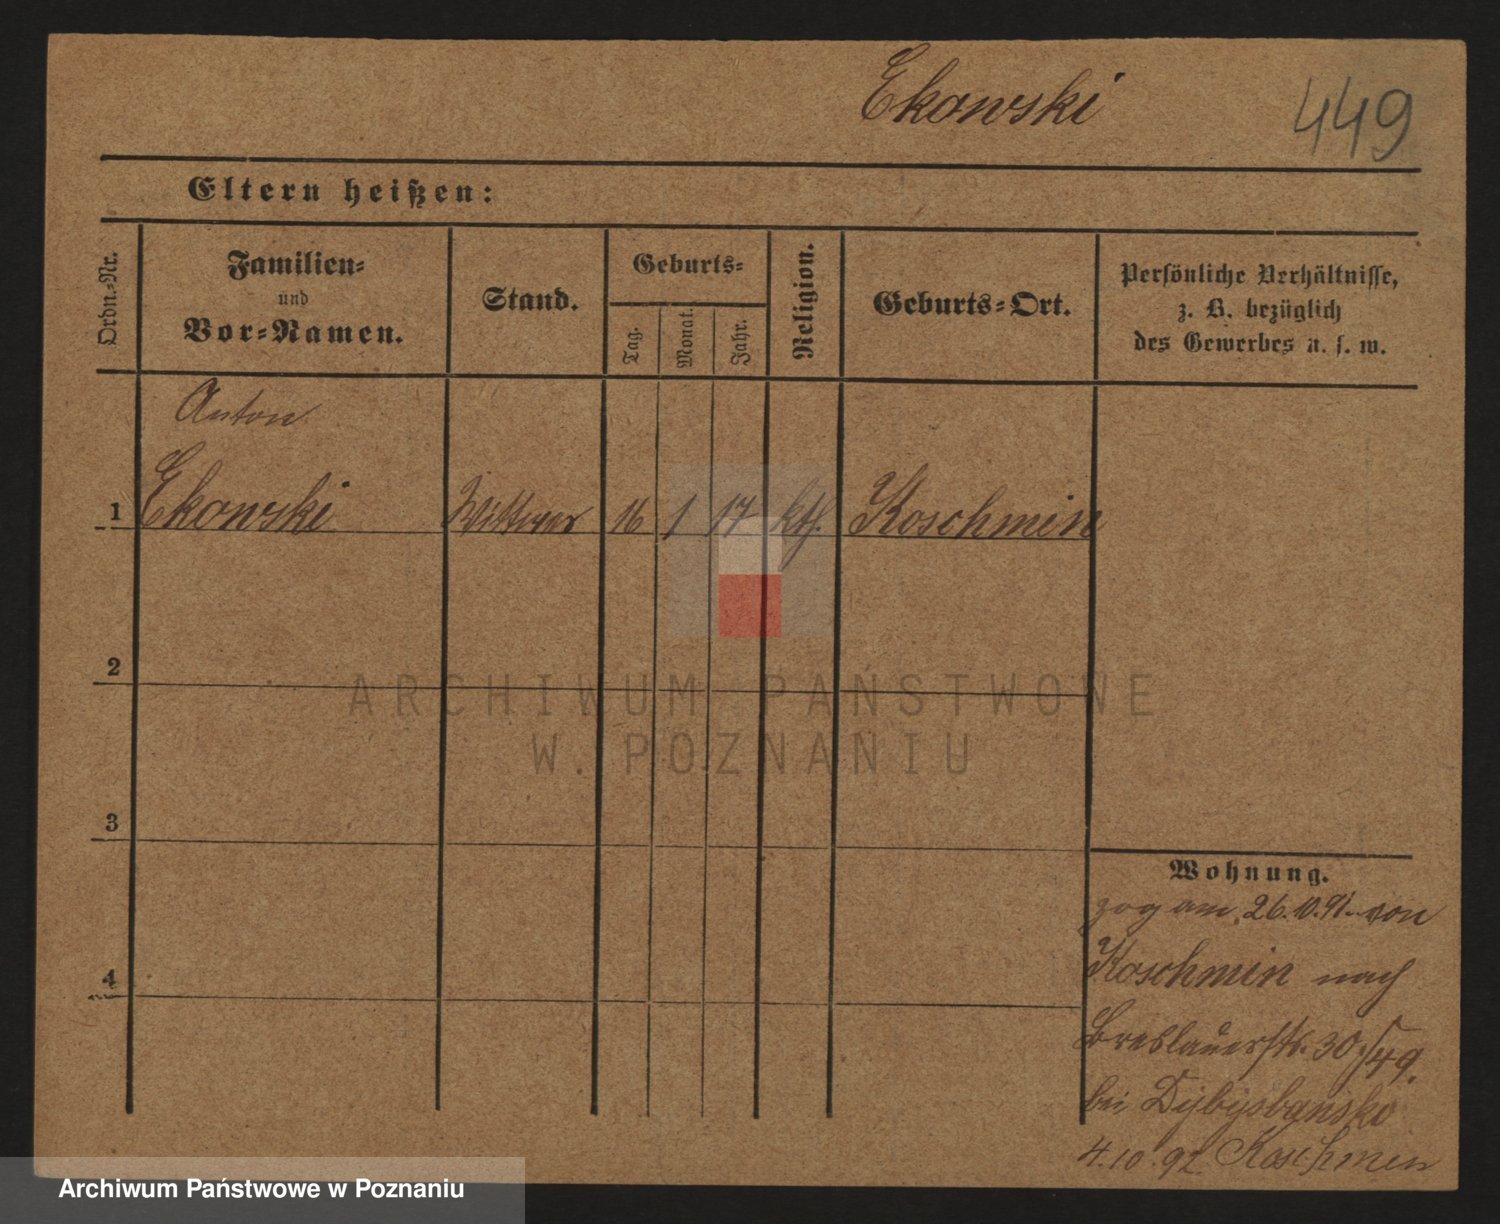 Ekowski
449
Eltern heißen:
Ordn.-Nr.
Familien-
und
Vor-Namen.
Stand.
Geburts-
Tag.
Monat.
Jahr.
Religion.
Geburts-Ort.
Persönliche Verhältnisse,
z. B. bezüglich
des Gewerbes u. s. w.
Anton
1 Ekowski Wittwer 16 1 17 kth. Koschmin
2
3
4
ARCHIWUM PAŃSTWOWE
W POZNANIU
Wohnung.
zog am 26.10.91. von
Koschmin nach
Breslauerstr. 30/49.
bei
4.10.92 Koschmin
Archiwum Państwowe w Poznaniu